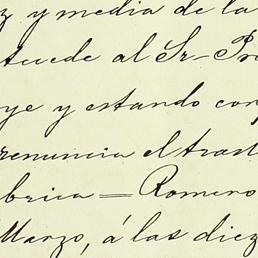 z y media de la
tuede al Sr Pr
ye y estando con
renuncia el trast
brica = Romero
Marzo, á las diez